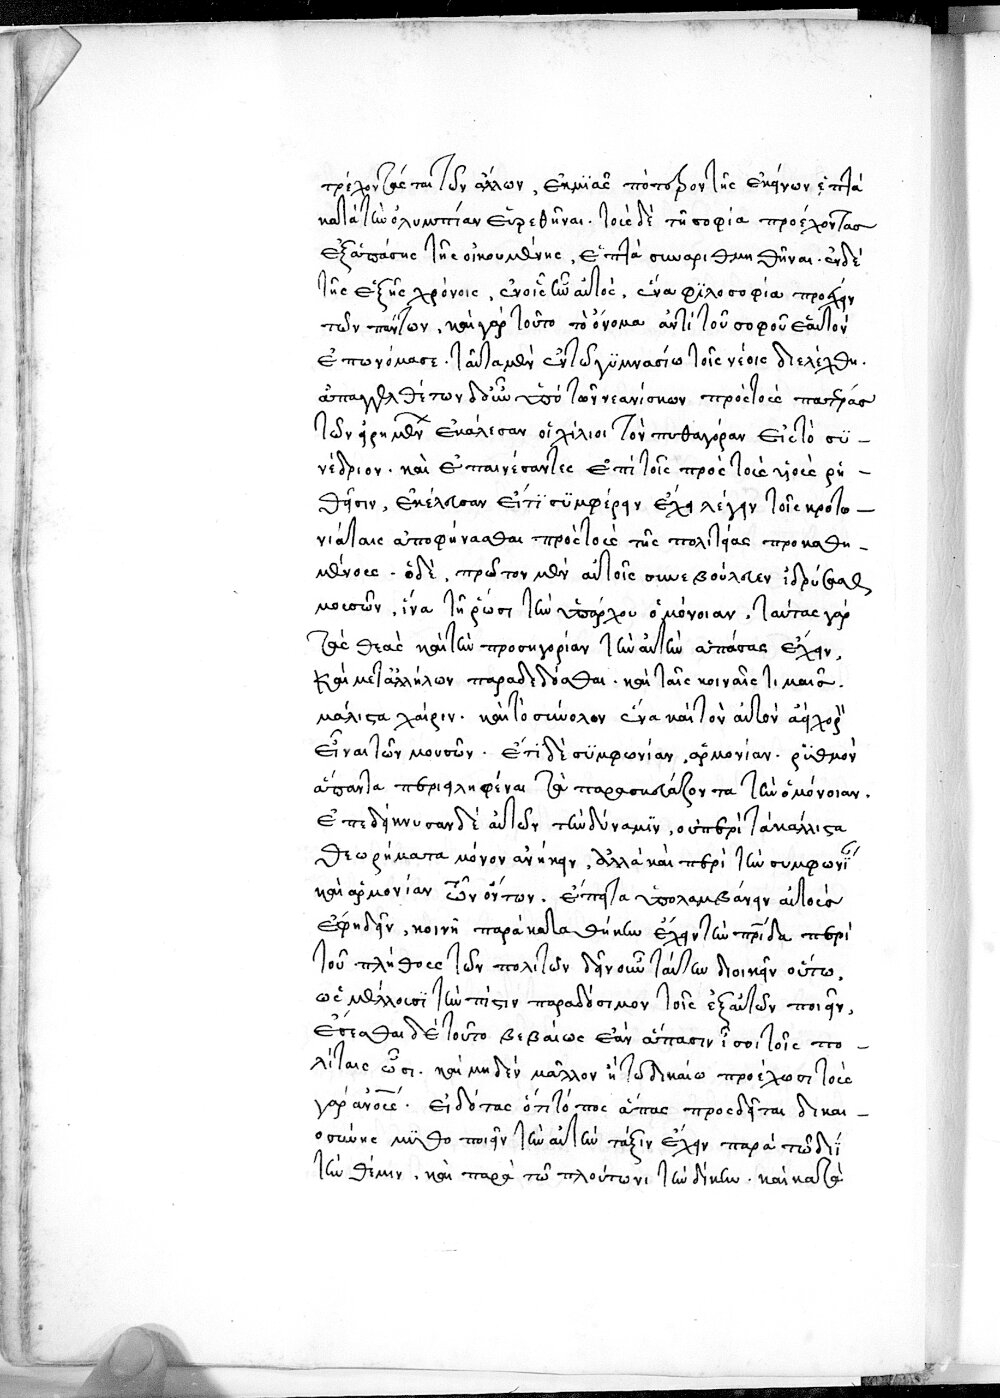 τρέχοντας παρὰ τῶν ἄλλων, ἐκ μιᾶς πό τοξον τῆς ἐκείνων ἑπτὰ
κατὰ τὴν ὀλυμπίαν εὑρεθῆναι. τοὺς δὲ τῇ σοφία προέχοντας
ἐξ ἁπάσης τῆς οἰκουμένης, ἑπτὰ συναριθμηθῆναι. ἐν δὲ
τῆς ἑξῆς χρόνοις, ἐν οἷς ἦν αὐτὸς, ἕνα φιλοσοφία προέχειν
τῶν πάντων, καὶ γὰρ τοῦτο τὸ ὄνομα ἀντὶ τοῦ σοφοῦ ἑαυτὸν
ἐπωνόμασε. ταῦτα μὲν ἐν τῷ γϋμνασίω τοῖς νέοις διελέχθη.
ἀπαγγελθέντων δ' οὖν ὑπὸ τῶν νεανίσκων πρὸς τοὺς πατέρας
τῶν εἰρημένων ἐκάλεσαν οἱ χίλιοι τὸν πυθαγόραν εἰς τὸ συ-
νέδριον. καὶ ἐπαινέσαντες ἐπὶ τοῖς πρὸς τοὺς υἱοὺς ῥη-
θεῖσιν, ἐκέλευσαν εἴ τι σϋμφέρειν ἔχει λέγειν τοῖς κροτω-
νιάταις ἀποφήνασθαι πρὸς τοὺς τῆς πολιτείας προκαθη-
μένους. ὁ δὲ, πρῶτον μὲν αὐτοῖς συνεβούλευεν ἱδρύσασθαι
μουσῶν, ἵνα τηρῶσι τὴν ὑπάρχου ὁμόνοιαν. ταύτας γὰρ
τὰς θεὰς καὶ τὴν προσηγορίαν τὴν αὐτὴν ἁπάσας ἔχειν,
καὶ μετ' ἀλλήλων παραδεδόσθαι. καὶ ταῖς κοιναῖς τιμαῖς.
μάλιστα χαίρειν. καὶ τὸ σύνολον ἕνα καὶ τὸν αὐτὸν ἀεὶ χορὸν
εἶναι τῶν μουσῶν. ἔτι δὲ σϋμφωνίαν, ἁρμονίαν. ῥϋθμὸν
ἅπαντα περιειληφέναι τὰ παρασκευάζοντα τὴν ὁμόνοιαν.
ἐπεδείκνυσαν δὲ αὐτῶν τὴν δύναμϊν, οὐ περὶ τὰ κάλλιστα
θεωρήματα μόνον ἀνήκειν, ἀλλὰ καὶ περὶ τὴν συμφωνίαν
καὶ ἁρμονίαν τῶν ὄντων. ἔπειτα ὑπολαμβάνειν αὐτοὺς
ἔφη δεῖν, κοινῇ παρακαταθήκην ἔχειν τὴν πρίδα περὶ
τοῦ πλήθους τῶν πολιτῶν δεῖν οὖν ταύτην διοικεῖν οὕτω,
ὡς μέλλουσϊ τὴν πίστιν παραδόσιμον τοῖς ἐξ αὐτῶν ποιεῖν,
ἔσεσθαι δὲ τοῦτο βεβαίως ἐὰν ἅπασιν ἴσοι τοῖς πο-
λίταις ὦσι. καὶ μηδὲν μᾶλλον ἢ τῷ δικαίω προέχωσι τοὺς
γὰρ ἀνους. εἰδότας ὅτι τόπος ἅπας προσδεῖται δικαι-
οσύνης μϋθοποιεῖν τὴν αὐτὴν τάξιν ἔχειν παρὰ τῶ διῒ
τὴν θέμιν, καὶ παρὰ τῶ πλούτωνι τὴν δίκην. καὶ κατὰ